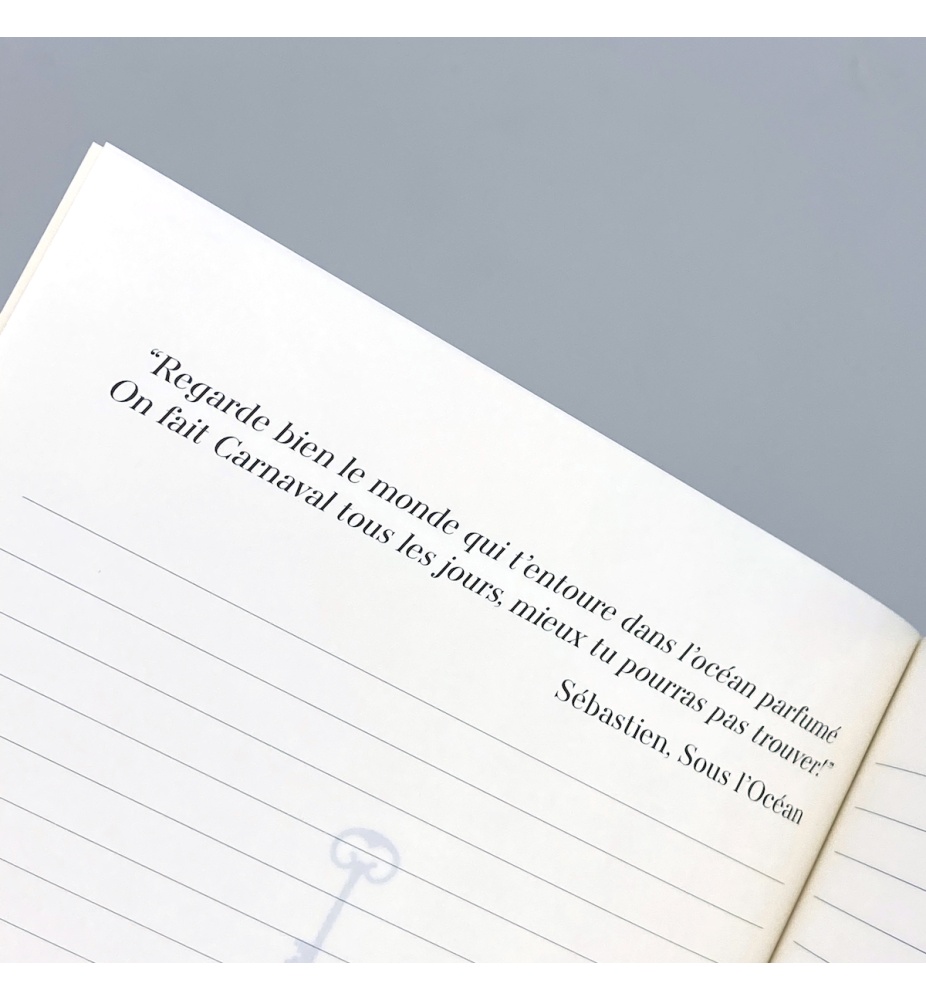 “Regarde bien le monde qui t’entoure dans l’océan parfumé
On fait Carnaval tous les jours, mieux tu pourras pas trouver!”
Sébastien, Sous l’Océan